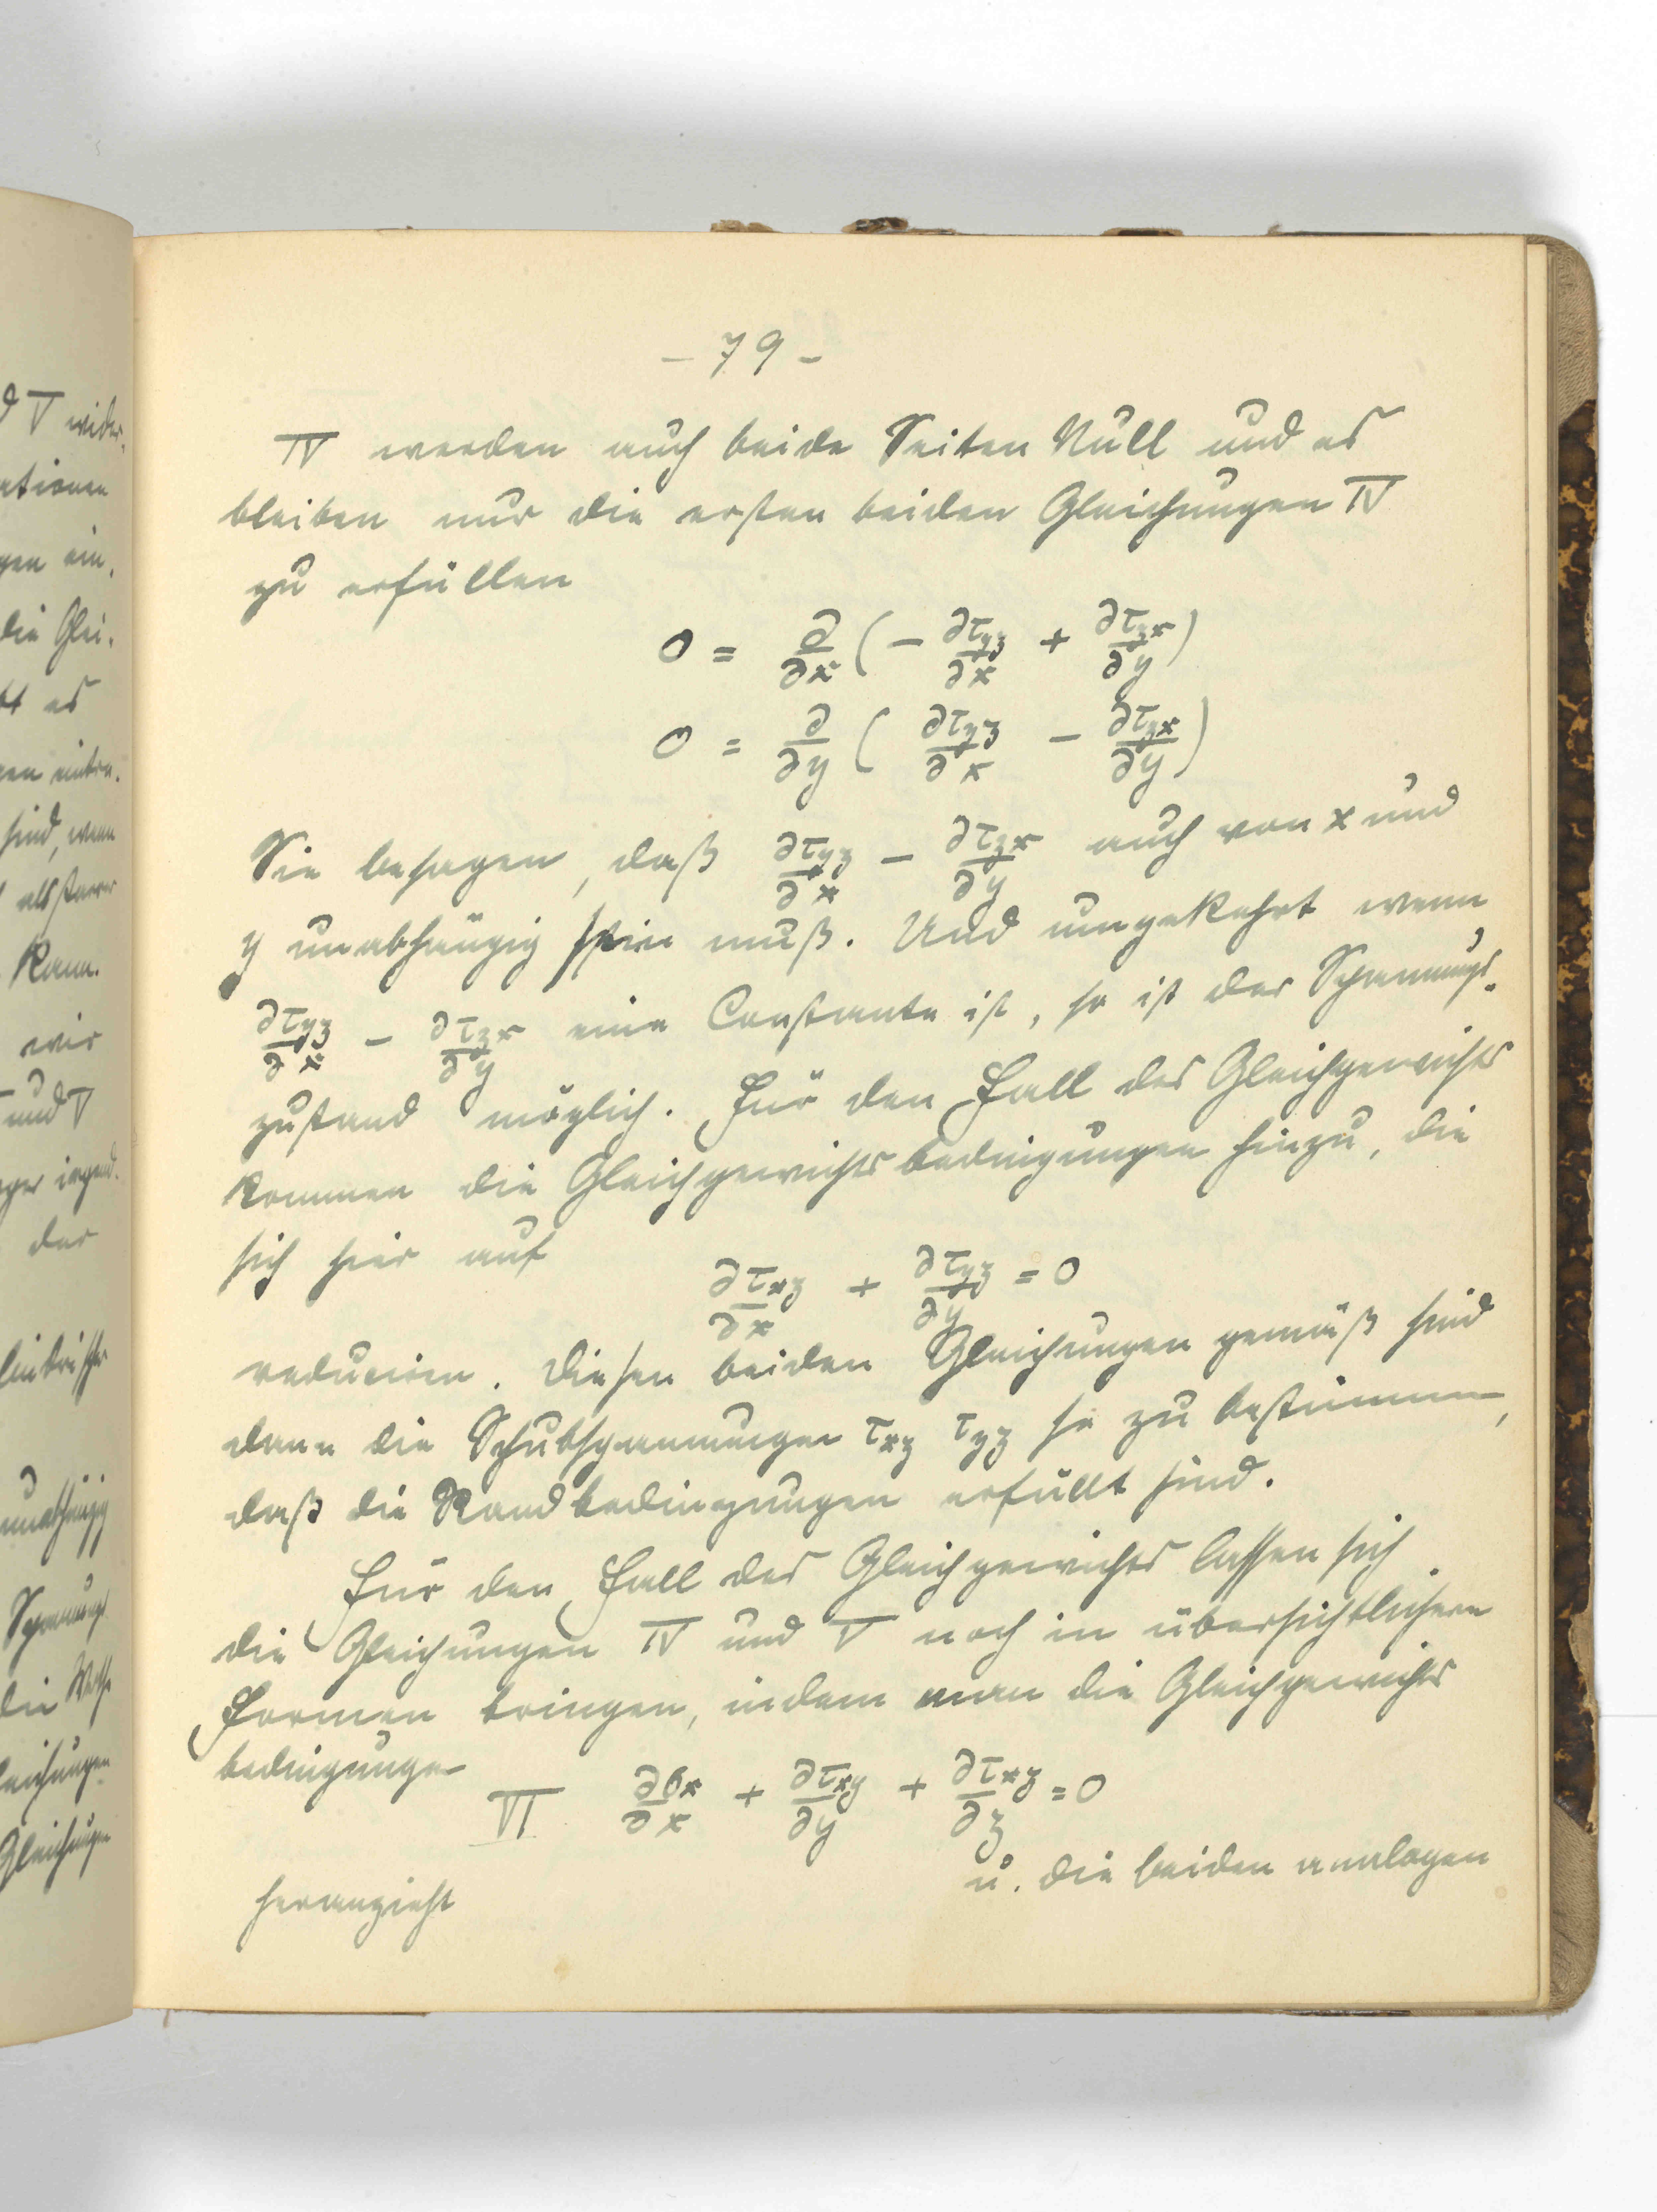 – 79 –
IV werden auch beide Seiten Null und es
bleiben nur die ersten beiden Gleichungen IV
zu erfüllen
0 = ∂/∂x (– ∂τyz/∂x + ∂τzx/∂y)
0 = ∂/∂y ( ∂τyz/∂x – ∂τzx/∂y)
Sie besagen, daß ∂τyz/∂x – ∂τzx/∂y auch von x und
y unabhängig sein muß. Und umgekehrt wenn
∂τyz/∂x – ∂τzx/∂y eine Constante ist, so ist der Spannungs-
zustand möglich. Für den Fall des Gleichgewichts
kommen die Gleichgewichtsbedingungen hinzu, die
sich hier auf
∂τxz/∂x + ∂τyz/∂y = 0
reducieren. Diesen beiden Gleichungen gemäß sind
dann die Schubspannungen τxz τyz so zu bestimmen,
daß die Randbedingungen erfüllt sind.
Für den Fall des Gleichgewichts lassen sich
die Gleichungen IV und V noch in übersichtlichere
Formen bringen, indem man die Gleichgewichts
bedingungen
VI ∂σx/∂x + ∂τxy/∂y + ∂τxz/∂z = 0
u. die beiden analogen
heranzieht